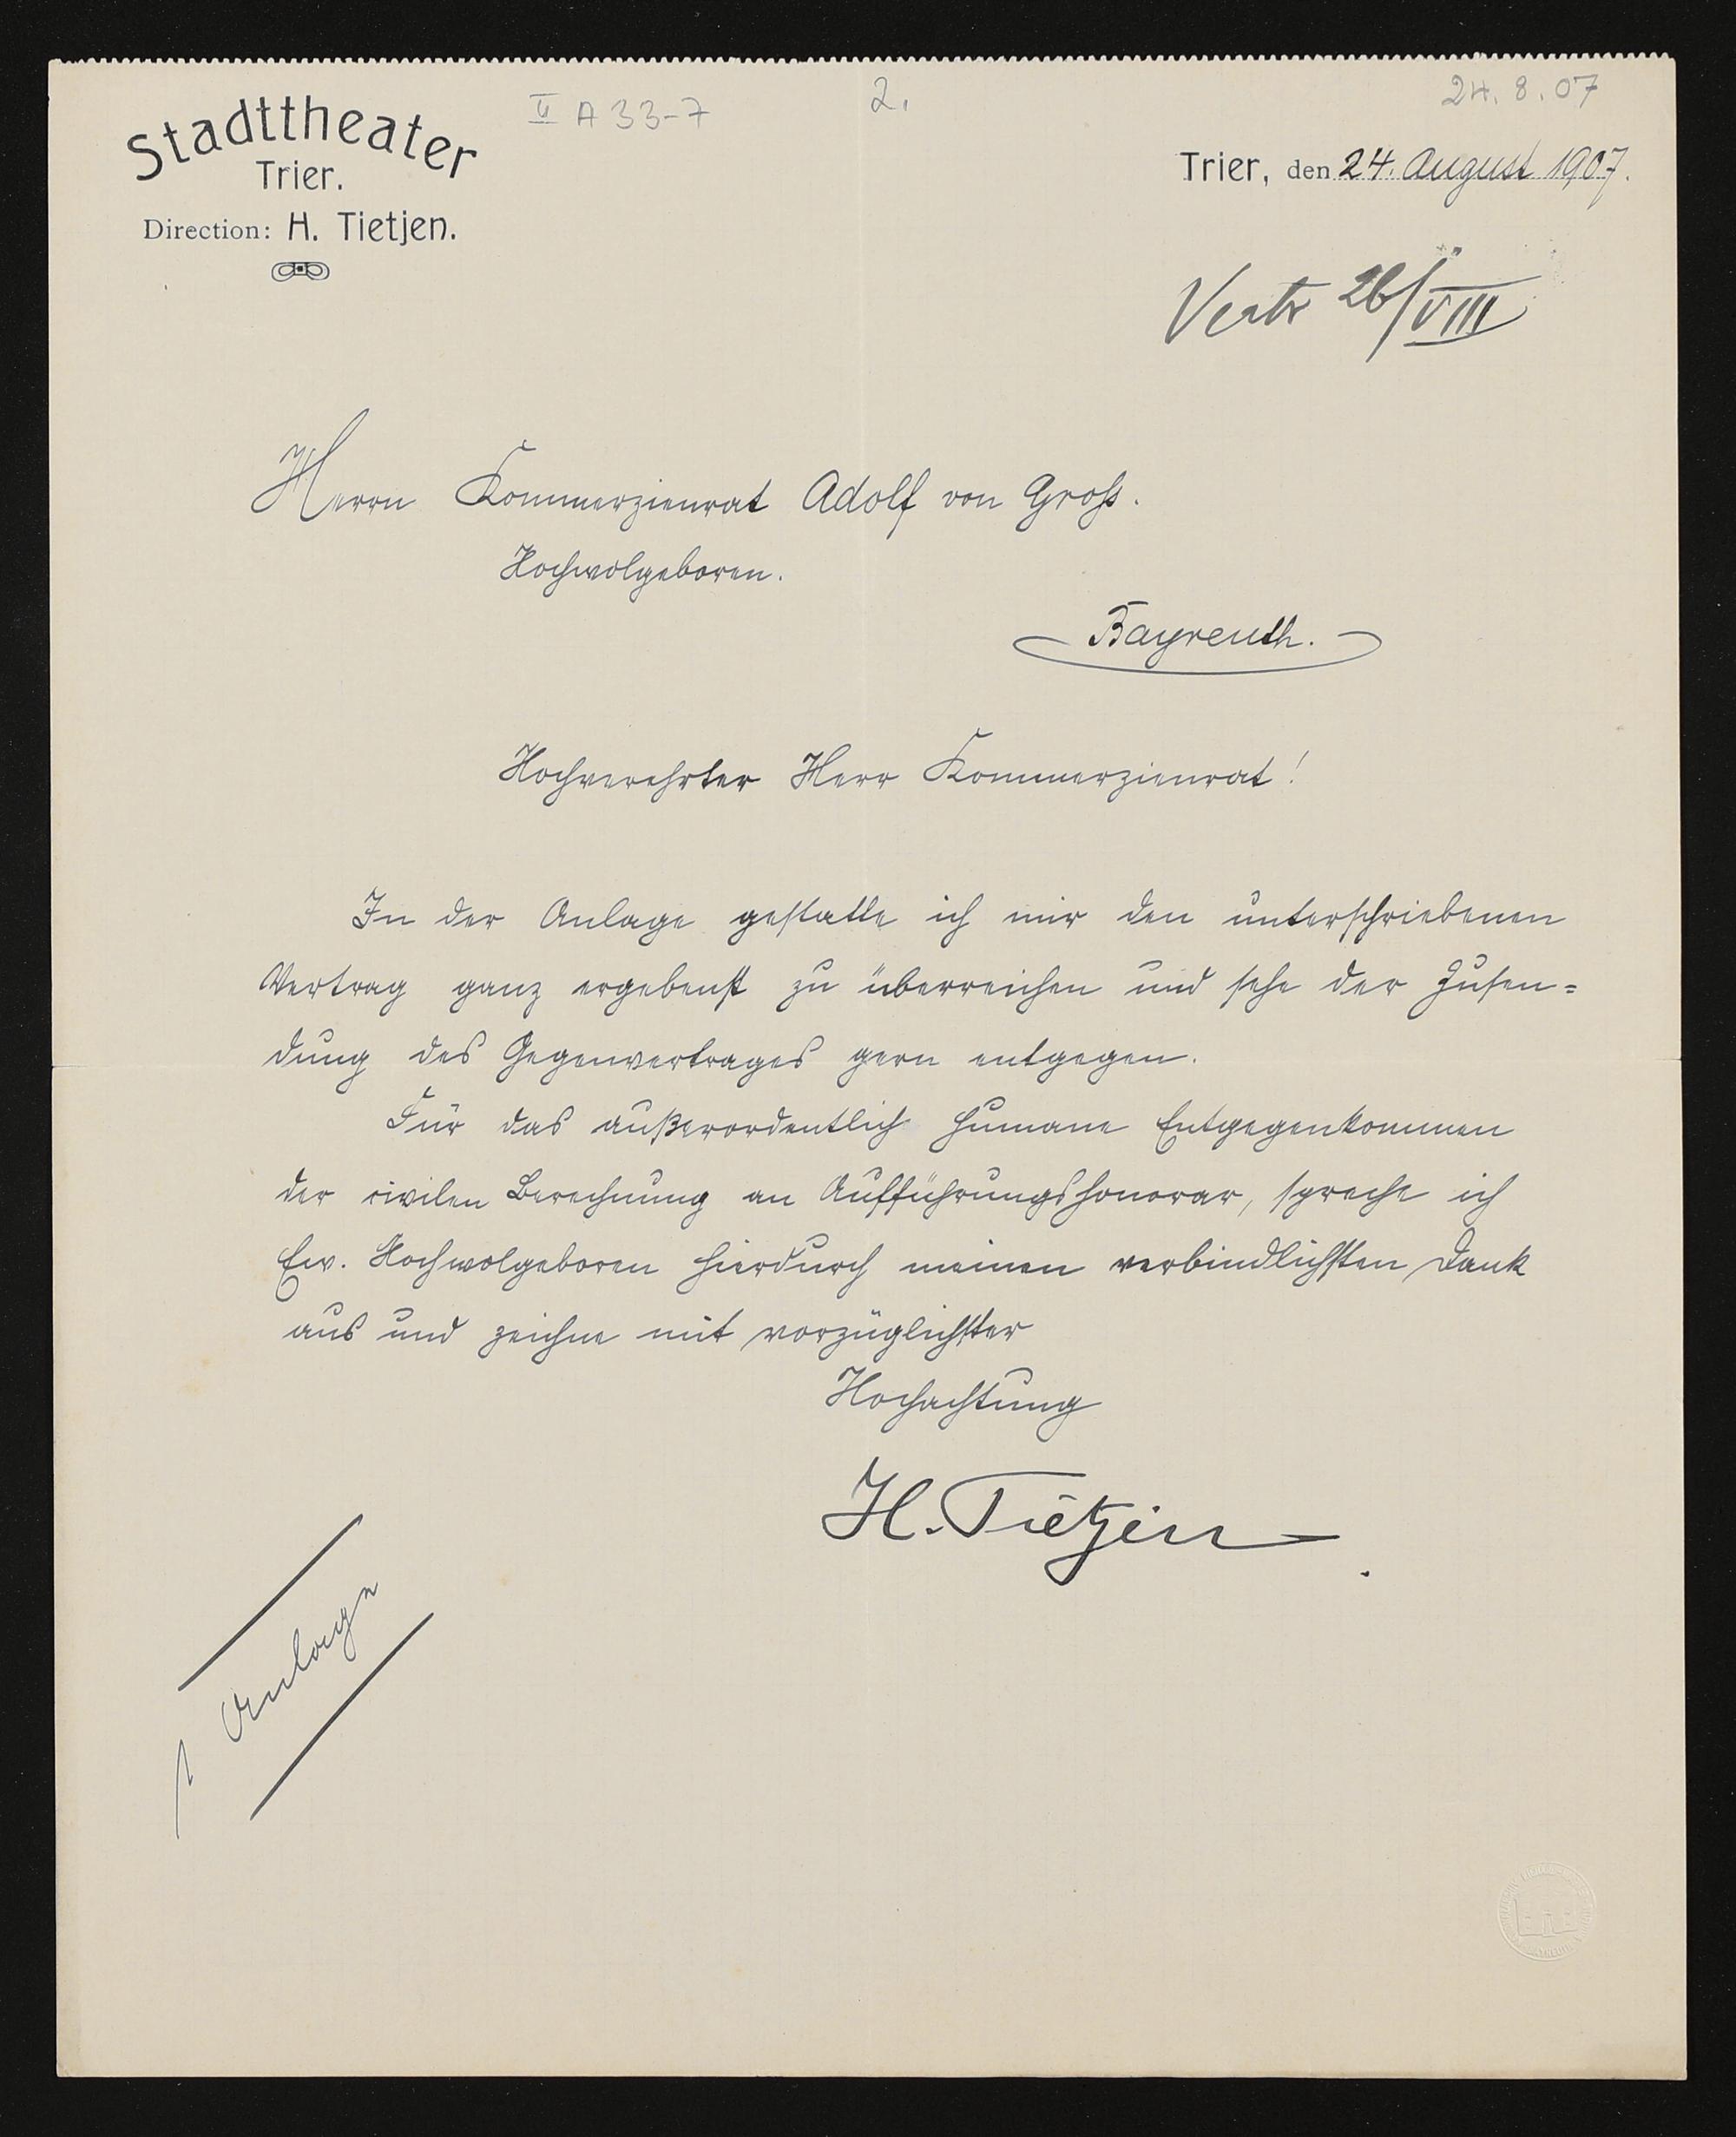 IV A 33-7
2.
24. 8. 07
Stadttheater
Trier.
Direction: H. Tietjen.
Trier, den 24. August 1907.
26/VIII
Herrn Kommerzienrat Adolf von Groß.
Hochwolgeboren.
Bayreuth.
Hochverehrter Herr Kommerzienrat!
In der Anlage gestatte ich mir den unterschriebenen
Vertrag ganz ergebenst zu überreichen und sehe der Zusen=
dung des Gegenvertrages gern entgegen.
Für das außerordentlich humane Entgegenkommen
der civilen Berechnung an Aufführungshonorar, spreche ich
Ew. Hochwolgeboren hierdurch meinen verbindlichsten Dank
aus und zeichne mit vorzüglichster
Hochachtung
H. Tietjen
1 Anlage